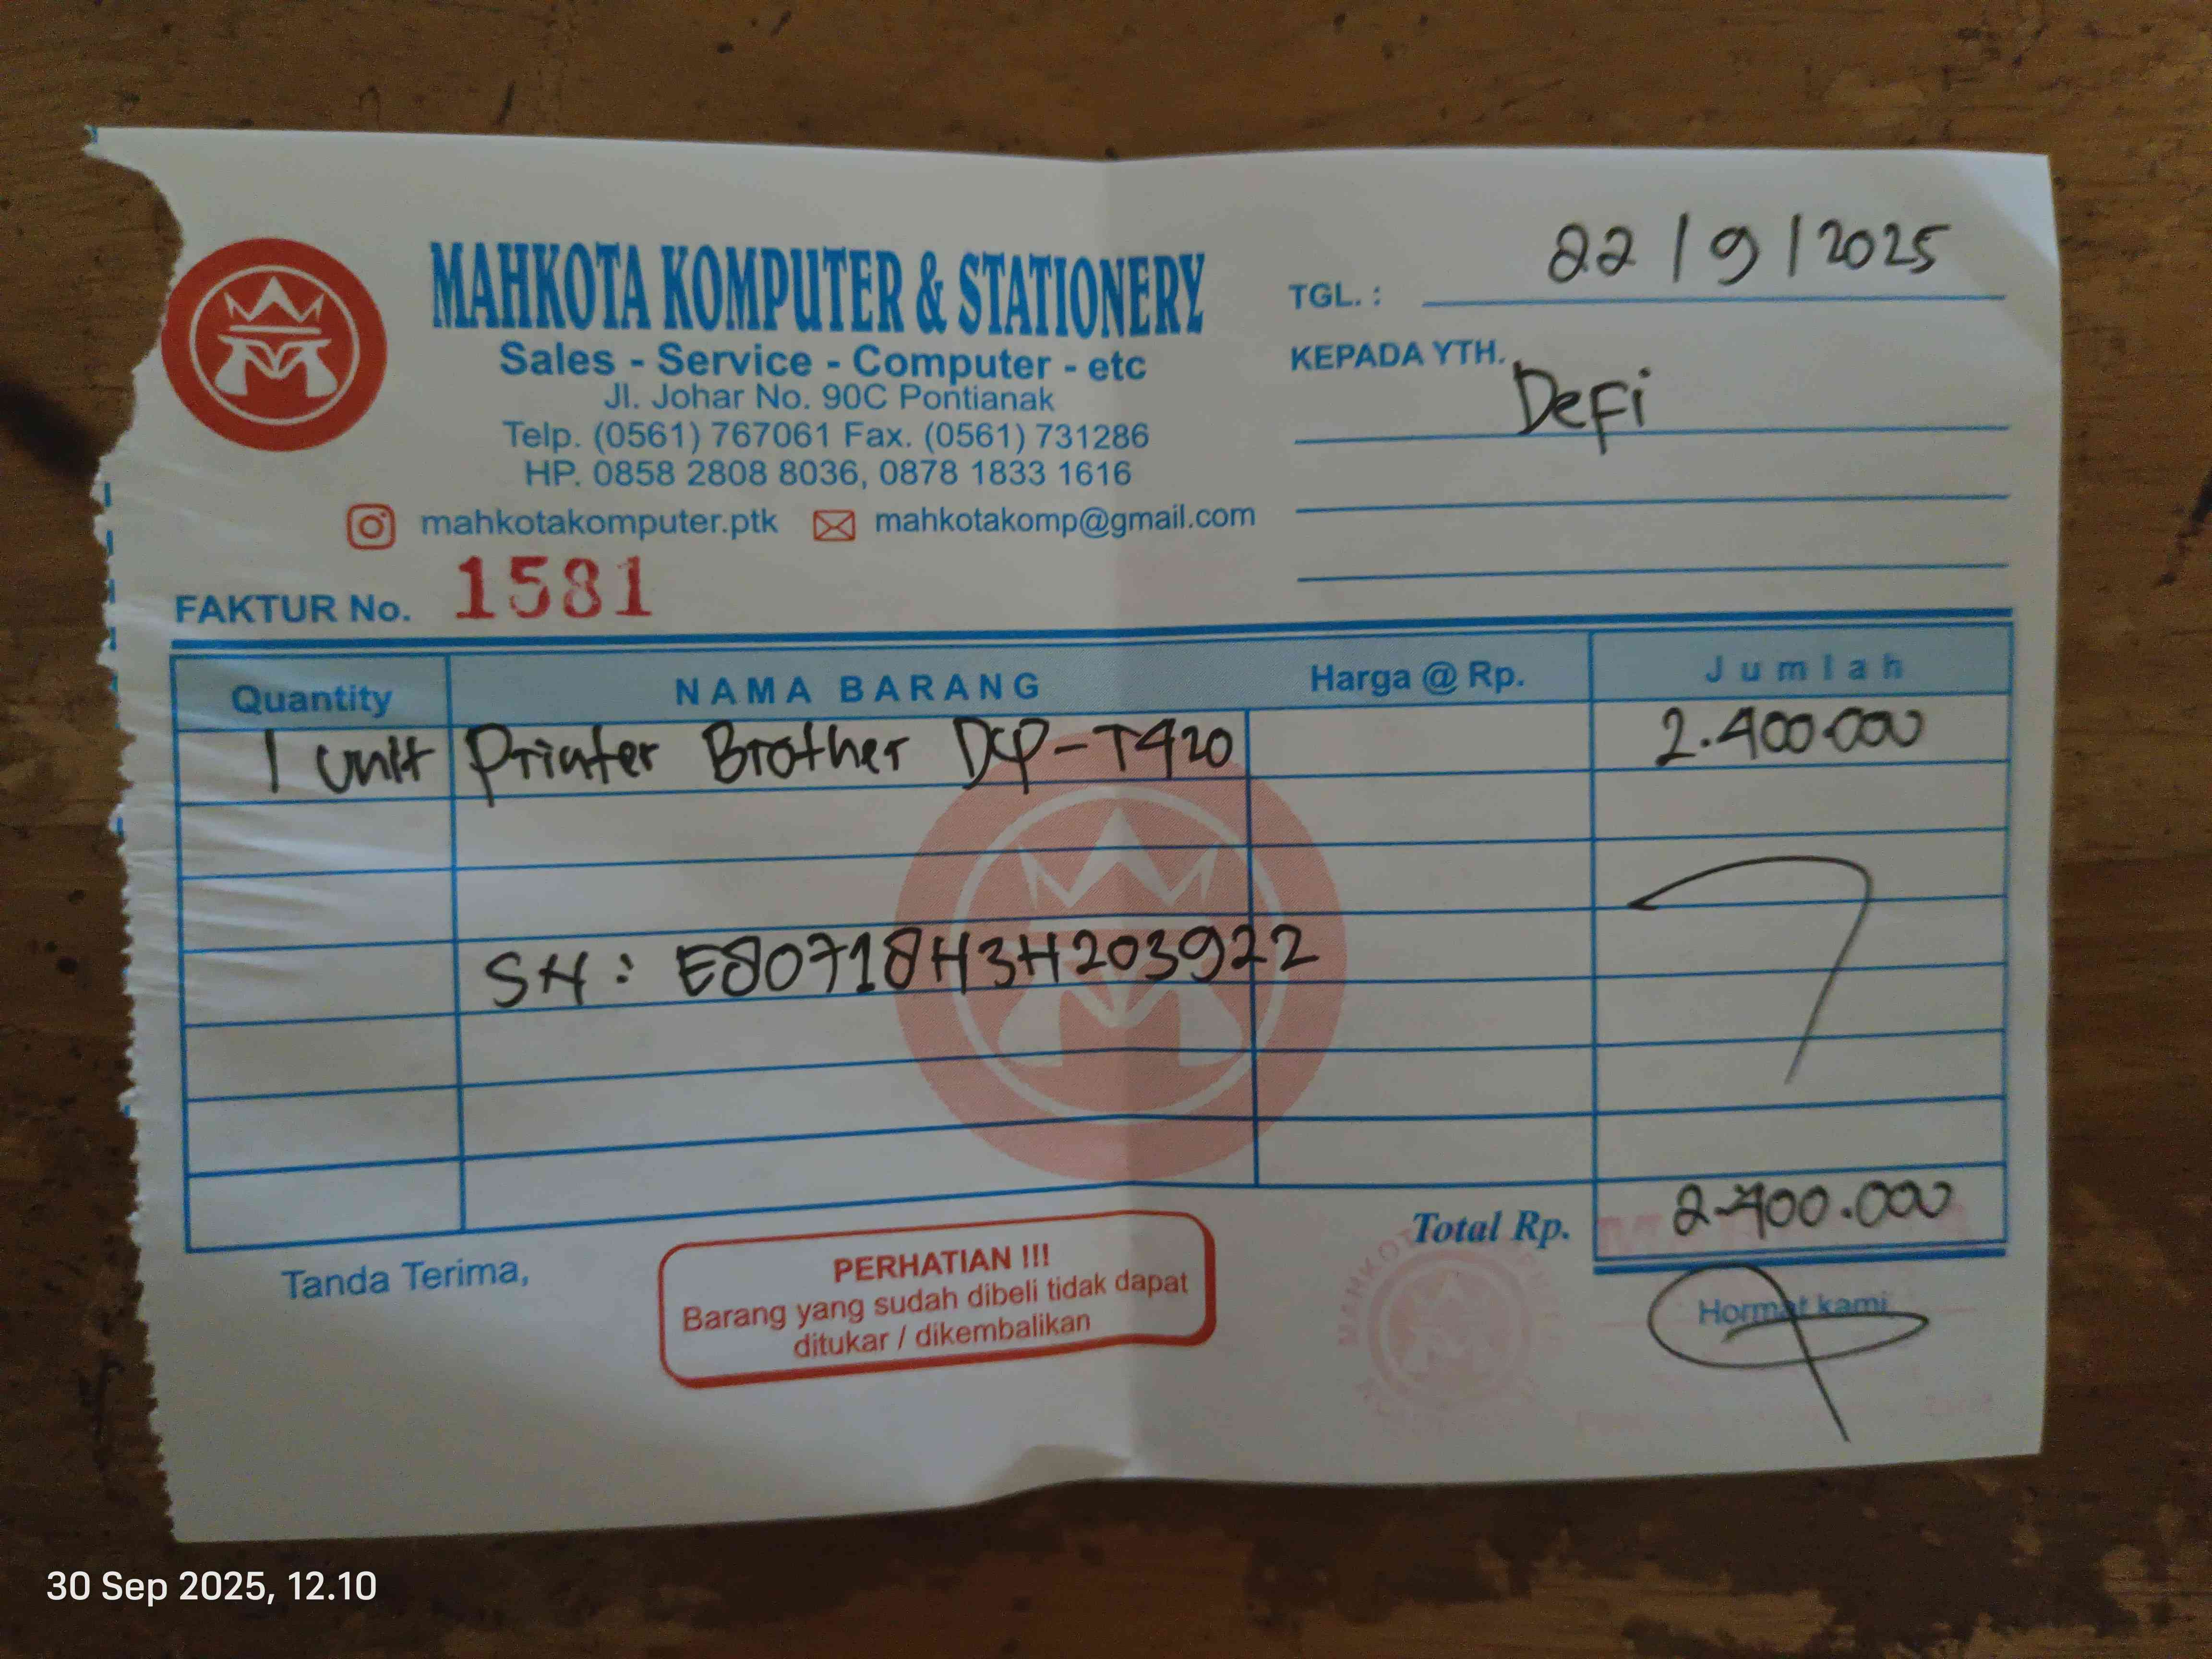 MAHKOTA KOMPUTER & STATIONERY
Sales - Service - Computer - etc
Jl. Johar No. 90C Pontianak
Telp. (0561) 767061 Fax. (0561) 731286
HP. 0858 2808 8036, 0878 1833 1616
mahkotakomputer.ptk mahkotakomp@gmail.com
FAKTUR No. 1581
TGL. : 22/9/2025
KEPADA YTH. Defi
Quantity NAMA BARANG Harga @ Rp. Jumlah
1 Unit Printer Brother DCP-T420 2.400.000
SN : E80718H3H203922
Total Rp. 2.400.000
Tanda Terima,
PERHATIAN !!!
Barang yang sudah dibeli tidak dapat
ditukar / dikembalikan
Hormat kami
30 Sep 2025, 12.10